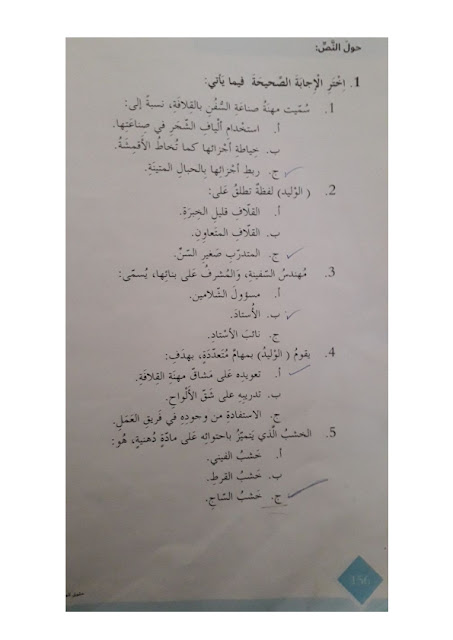 حولَ النَّصِّ:
1. اِخْتَرِ الْإجابَةَ الصَّحيحَةَ فيما يَأتي:
1. سُمّيت مِهنَةُ صناعَةِ السُّفُنِ بالقِلافَةِ، نسبةً إلى:
أ. استخْدامِ ألْيافِ الشَّجَرِ في صِناعَتِها.
ب. خِياطَةِ أجْزائِها كما تُخاطُ الأَقمِشَةُ.
ج. ربطِ أجْزائِها بِالحبالِ المتينَةِ.
2. (الوْليد) لفظةٌ تطلقُ عَلى:
أ. القلّافِ قليلِ الخِبرَةِ.
ب. القلّافِ المتَعاوِنِ.
ج. المتدرّبِ صَغيرِ السّنّ.
3. مُهندِسُ السّفينَةِ، وَالمُشرفُ عَلى بنائِها، يُسمّى:
أ. مسؤولَ السّلامين.
ب. الأُستاذَ.
ج. نائبَ الأسْتادِ.
4. يقومُ (الوْليدُ) بمهامٍّ مُتَعدّدَةٍ، بهدَفِ:
أ. تعويدِه عَلى مَشاقّ مهنَةِ القلافَةِ.
ب. تدريبِهِ عَلى شَقّ الأَلْواحِ.
ج. الاستفادَةِ من وجودِهِ في فَريقِ العَمَلِ.
5. الخشبُ الَّذي يَتميّزُ باحتوائِهِ عَلى مادّةٍ دُهنيةٍ، هُوَ:
أ. خَشبُ الفيني.
ب. خَشبُ القرطِ.
ج. خَشبُ السّاجِ.
156